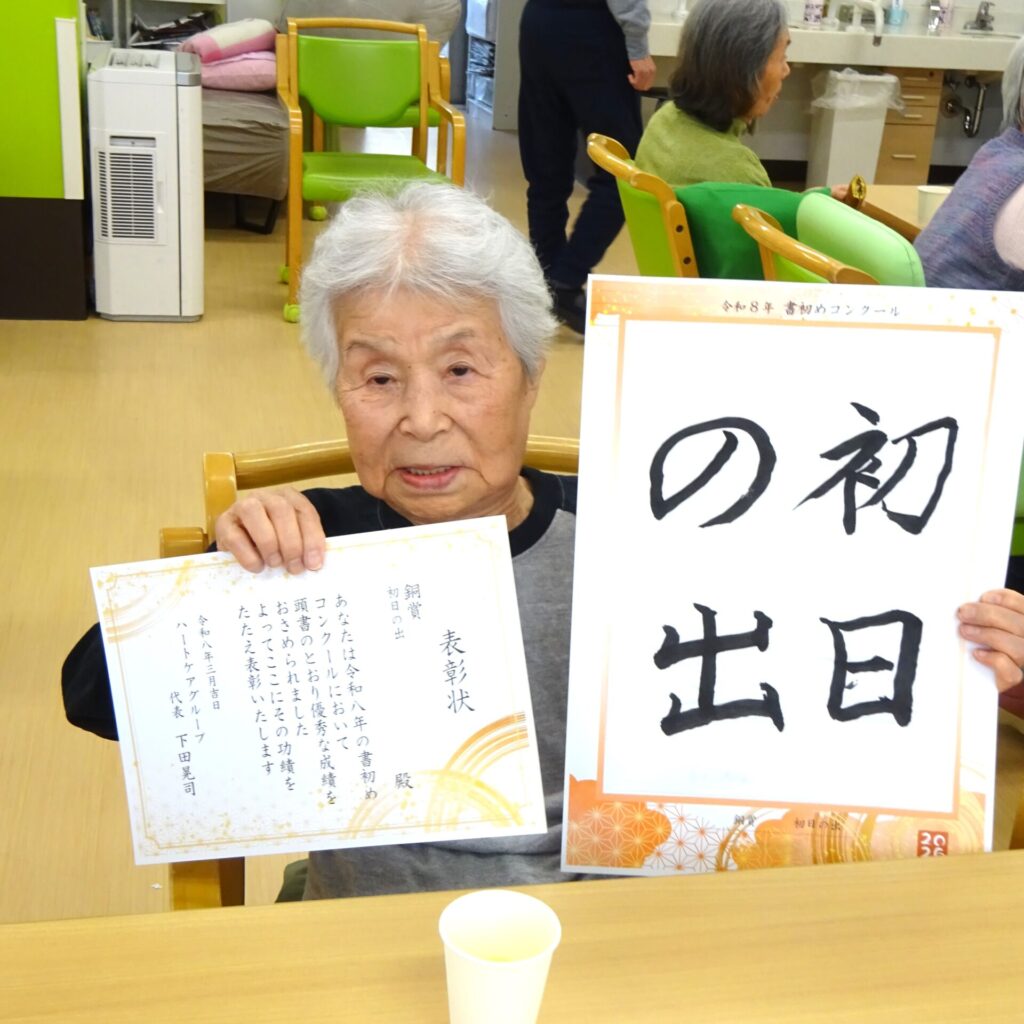 表彰状
銅賞
初日の出
殿
あなたは令和八年の書初め
コンクールにおいて
頭書のとおり優秀な成績を
おさめられました
よってここにその功績を
たたえ表彰いたします
令和八年三月吉日
ハートケアグループ
代表 下田晃司
令和8年 書初めコンクール
初日
の出
銅賞 初日の出
2026